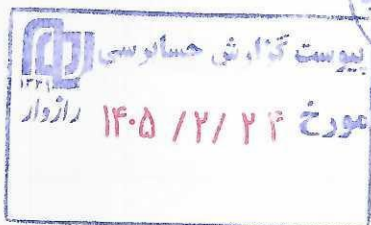 پیوست گزارش حسابرسی
۱۳۲۹
رازدار
مورخ ۱۴۰۵ / ۲ / ۲۴